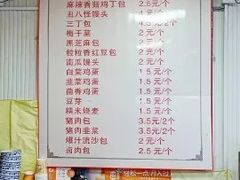 麻辣香菇鸡丁包 2.5元/个
五八怪馒头 元/个
三丁包 4元/个
梅干菜 2元/个
黑芝麻包 2元/个
粒粒香红豆包 2元/个
南瓜馒头 2元/个
白菜鸡蛋 1.5元/个
韭菜鸡蛋 1.5元/个
茴香鸡蛋 1.5元/个
豆芽 1.5元/个
糯米烧麦 1.5元/个
猪肉包 3.5元/2个
猪肉韭菜 3.5元/2个
爆汁流沙包 2元/个
卤肉包 2.5元/个